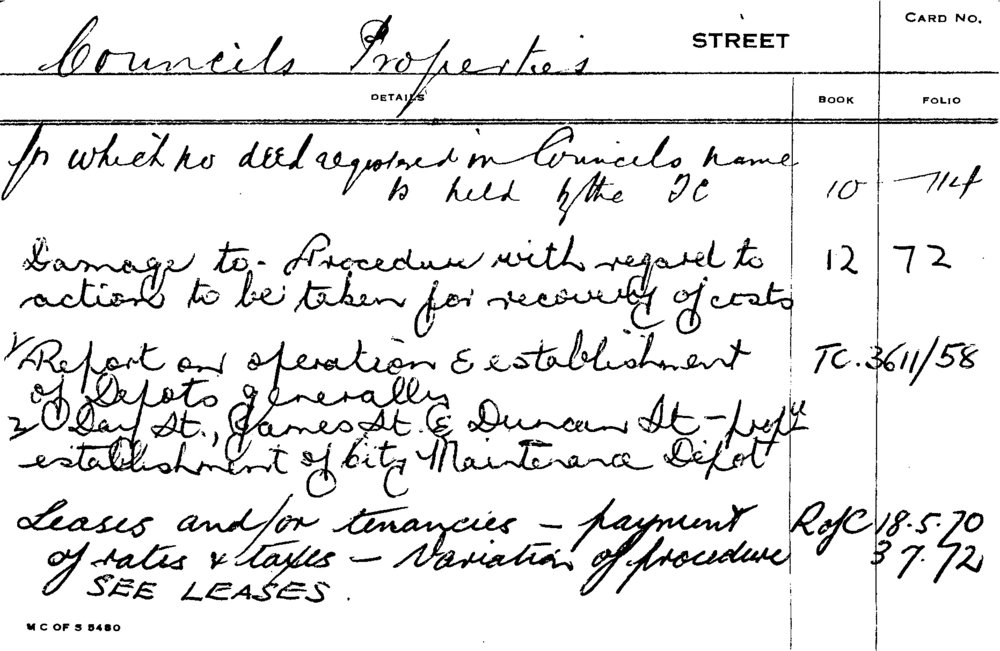 CARD NO.
Councils Properties STREET
DETAILS BOOK FOLIO
for which no deed registered in Councils name
is held by the TC 10 714
Damage to - Procedure with regard to 12 72
action to be taken for recovery of costs
1/ Report on operation & establishment TC. 3611/58
of Depots generally
2/ Day St., James St. & Duncan St - propd
establishment of City Maintenance Depot
Leases and/or tenancies - payment RofC 18.5.70
of rates & taxes - Variation of procedure 3 7.72
SEE LEASES.
M C OF S 5480